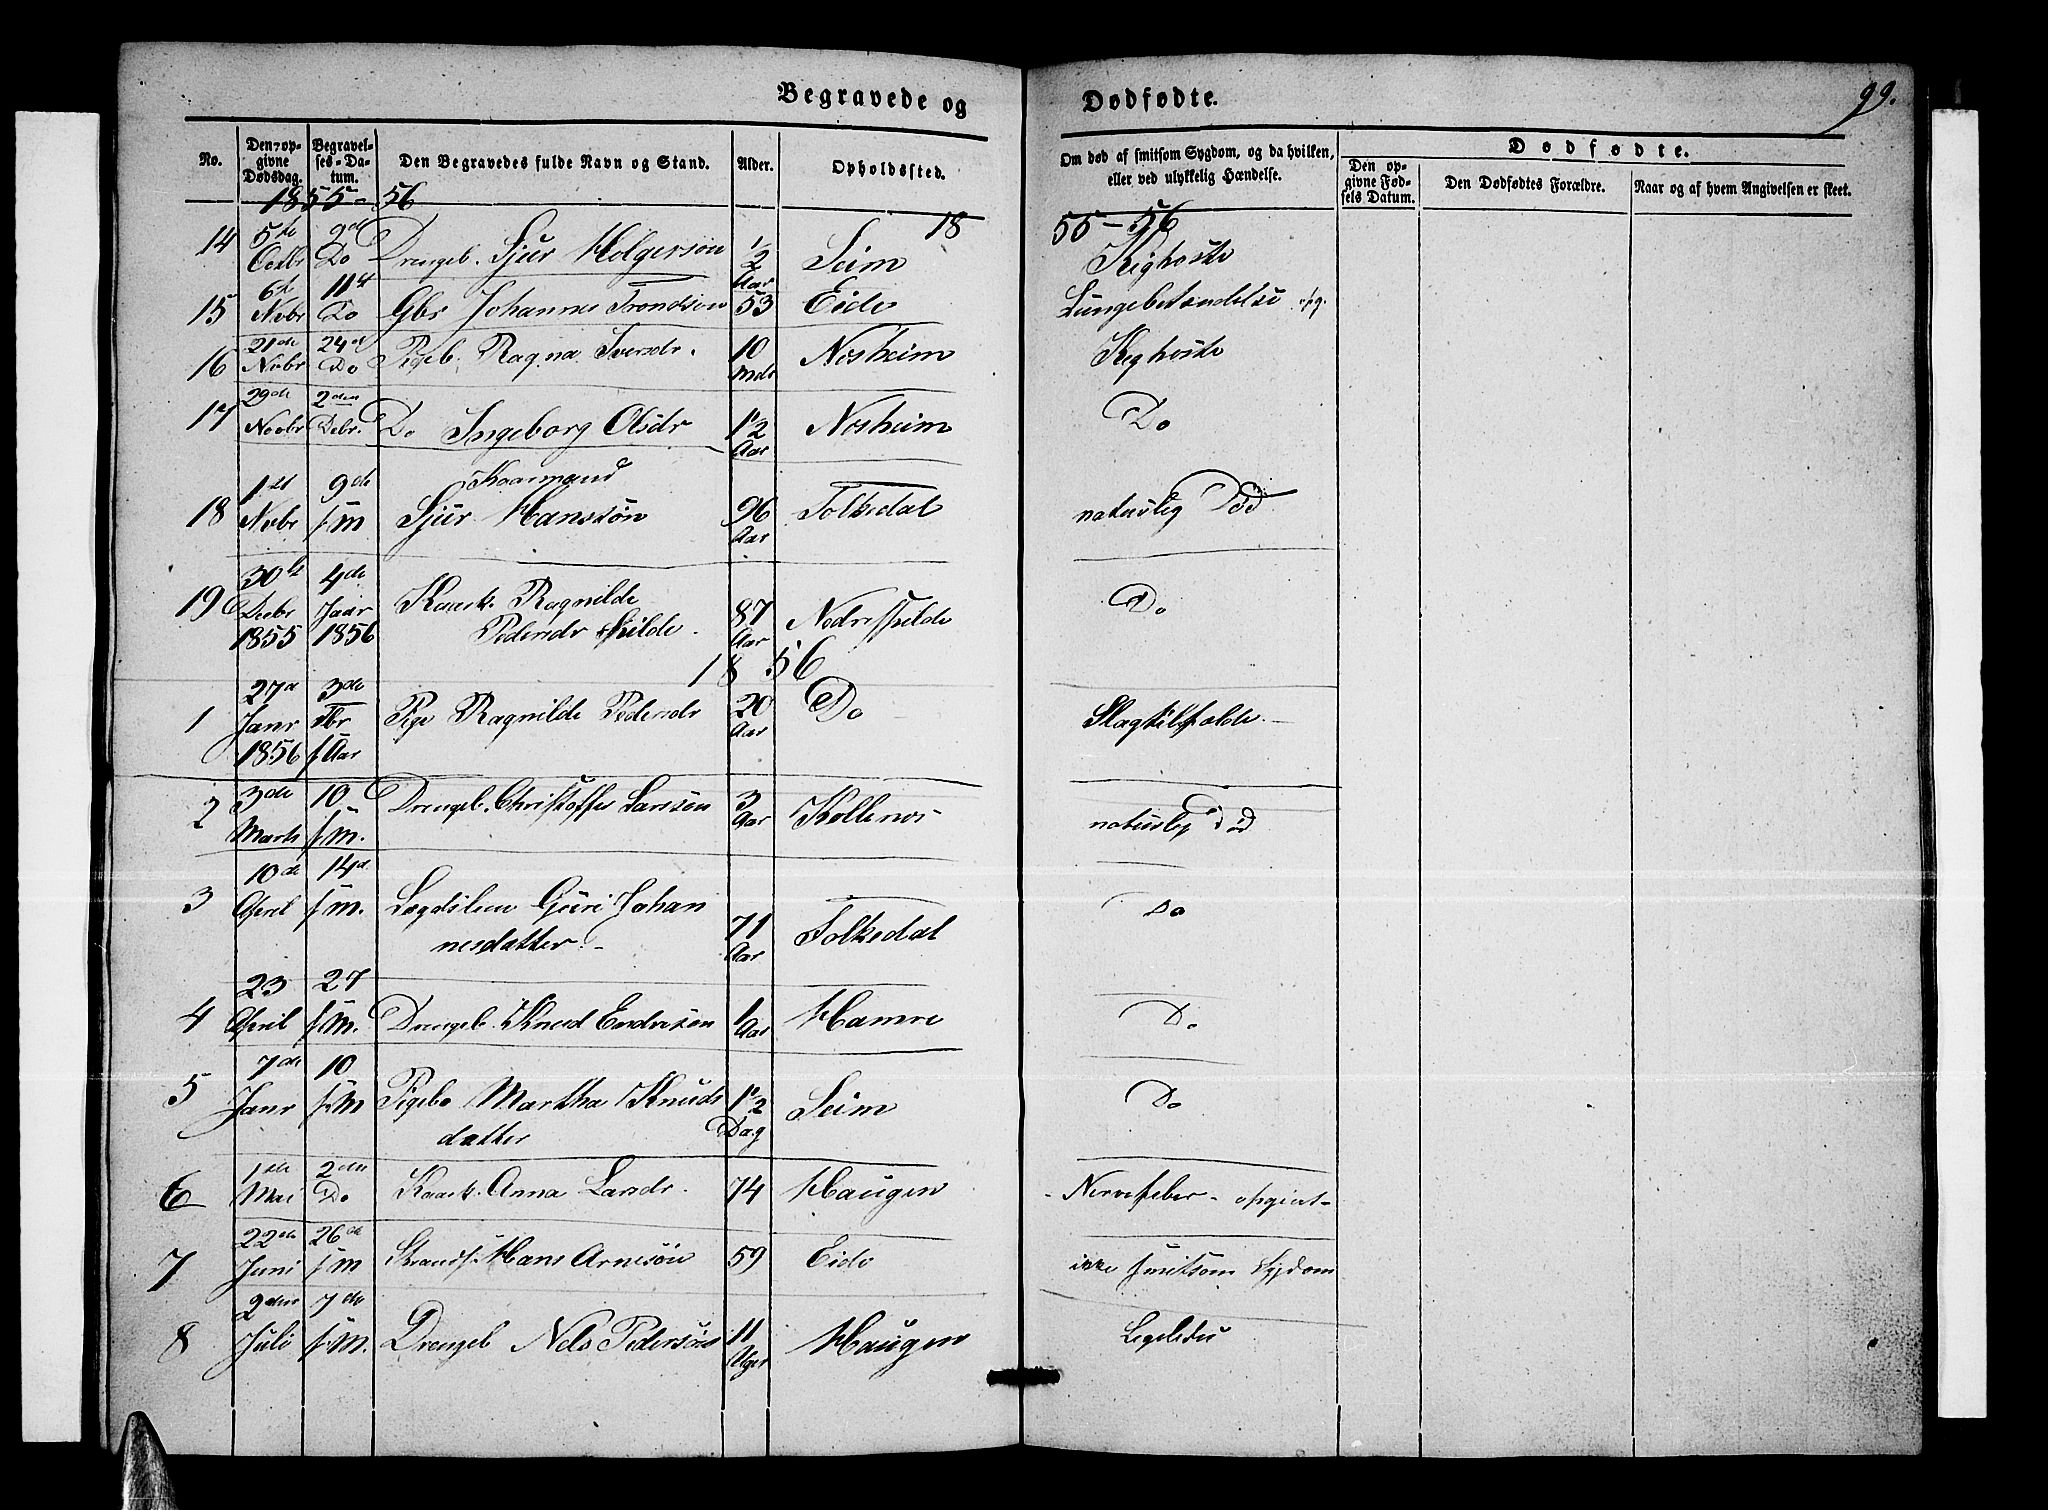 Begravede og Dødfødte. 99.
No. Den opgivne Dødsdag. Begravelses-Datum. Den Begravedes fulde Navn og Stand. Alder. Opholdssted. Om død af smitsom Sygdom, og da hvilken, eller ved ulykkelig Hændelse. Dødfødte.
Den opgivne Fødsels Datum. Den Dødfødtes Forældre. Naar og af hvem Angivelsen er skeet.
1855-56 1855-56
14 5te Octbr 9de Do Drengeb. Sjur Holgersøn 1/2 Aar Seim Kighoste
15 6te Novbr 11te Do Gbr Johannes Trondsøn 53 Eide Lungebetændelse opg.
16 21de Novbr 24d Do Pigeb. Ragna Iversdr. 10 Mdr Nesheim Kighoste
17 29de Novbr 2den Debr. Do Ingeborg Olsdr 1 1/2 Aar Nesheim Do
18 1ste Novbr 9de s. M Kaarmand
Sjur Hanssøn 96 Aar Folkedal naturlig Død
19 30te Decbr 1855 4de Jaar 1856 Kaark. Ragnilde
Pedersdr Skilde. 87 Aar Nedreskilde Do
1856
1 27d Janr 1856 3de Fbr s. Aar Pige Ragnilde Pedersdr 20 Aar Do Slagtilfælde.
2 3de Marts 10 s. M. Drengeb. Christoffer Larssøn 3 Aar Kollenes naturlig Død
3 10de April 14d s. M. Lægdslem Guri Johan
nesdatter. 71 Aar Folkedal Do
4 23 April 27 s. M. Drengeb. Knud Endresøn 1 Aar Hamre Do
5 7de Janr 10 s. M Pigeb. Martha Knuds
datter 1 1/2 Dag Seim Do
6 1ste Mai 2den Do Kaark. Anna Larsdr. 74 Haugen Nervefeber - opgivet -
7 22de Juni 26de s. M Strands. Hans Arnesøn 59 Eide ikke smitsom Sygdom
8 2den Juli 7de s. M. Drengeb Nels Pedersøn 11 Uger Haugen